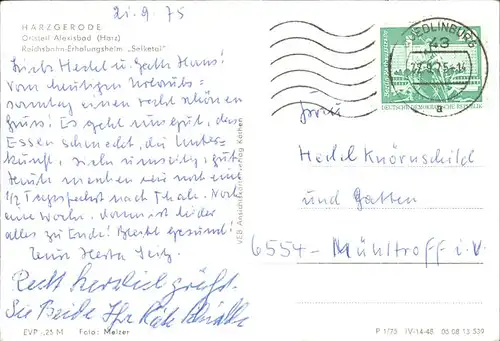 21.9.75
HARZGERODE
Ortsteil Alexisbad (Harz)
Reichsbahn-Erholungsheim „Selketal"
Liebe Hedel u. Gatte Hans!
Vom heutigen Urlaubs-
sonntag einen recht schönen
Gruss! Es geht uns gut, das
Essen schmeckt, die Unter-
kunft, gute
Heute machen wir noch eine
1/2 Tagesfahrt nach Thale. Noch
eine Woche, dann ist leider
alles zu Ende! Bleibt gesund!
Eure Herta Seitz.
Recht herzlich grüßt
Sie Beide Ihr Käte
EVP -,25 M Foto: Melzer
VEB Ansichtskartenverlag Köthen
QUEDLINBURG
43
a
DEUTSCHE DEMOKRATISCHE REPUBLIK
Frau
Hedel Knörnschild
und Gatten
6554 - Mühltroff i. V.
P 1/75 IV-14-48 05 08 13 539